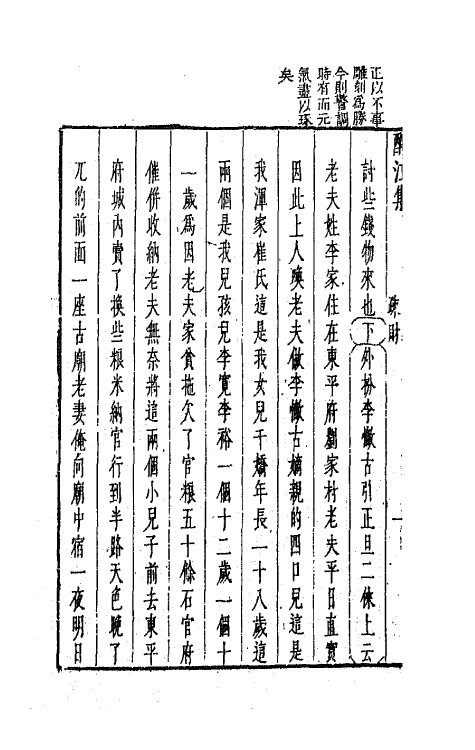 正以不事
雕刻為勝
今則警調
時有而元
氣盡以琢
矣
酹江集
討些錢物來也下外扮李憿古引正旦二俫上云
老夫姓李家住在東平府劉家村老夫平日直實
因此上人喚老夫做李憿古嫡親的四口兒這是
我渾家崔氏這是我女兒千嬌年長一十八歲這
兩個是我兒孩兒李寛李裕一個十二歲一個十
一歲為因老夫家貧拖欠了官粮五十餘石官府
催併收納老夫無奈將這兩個小兒子前去東平
府城內賣了換些粮米納官行到半路天色晚了
兀的前面一座古廟老妻俺向廟中宿一夜明日